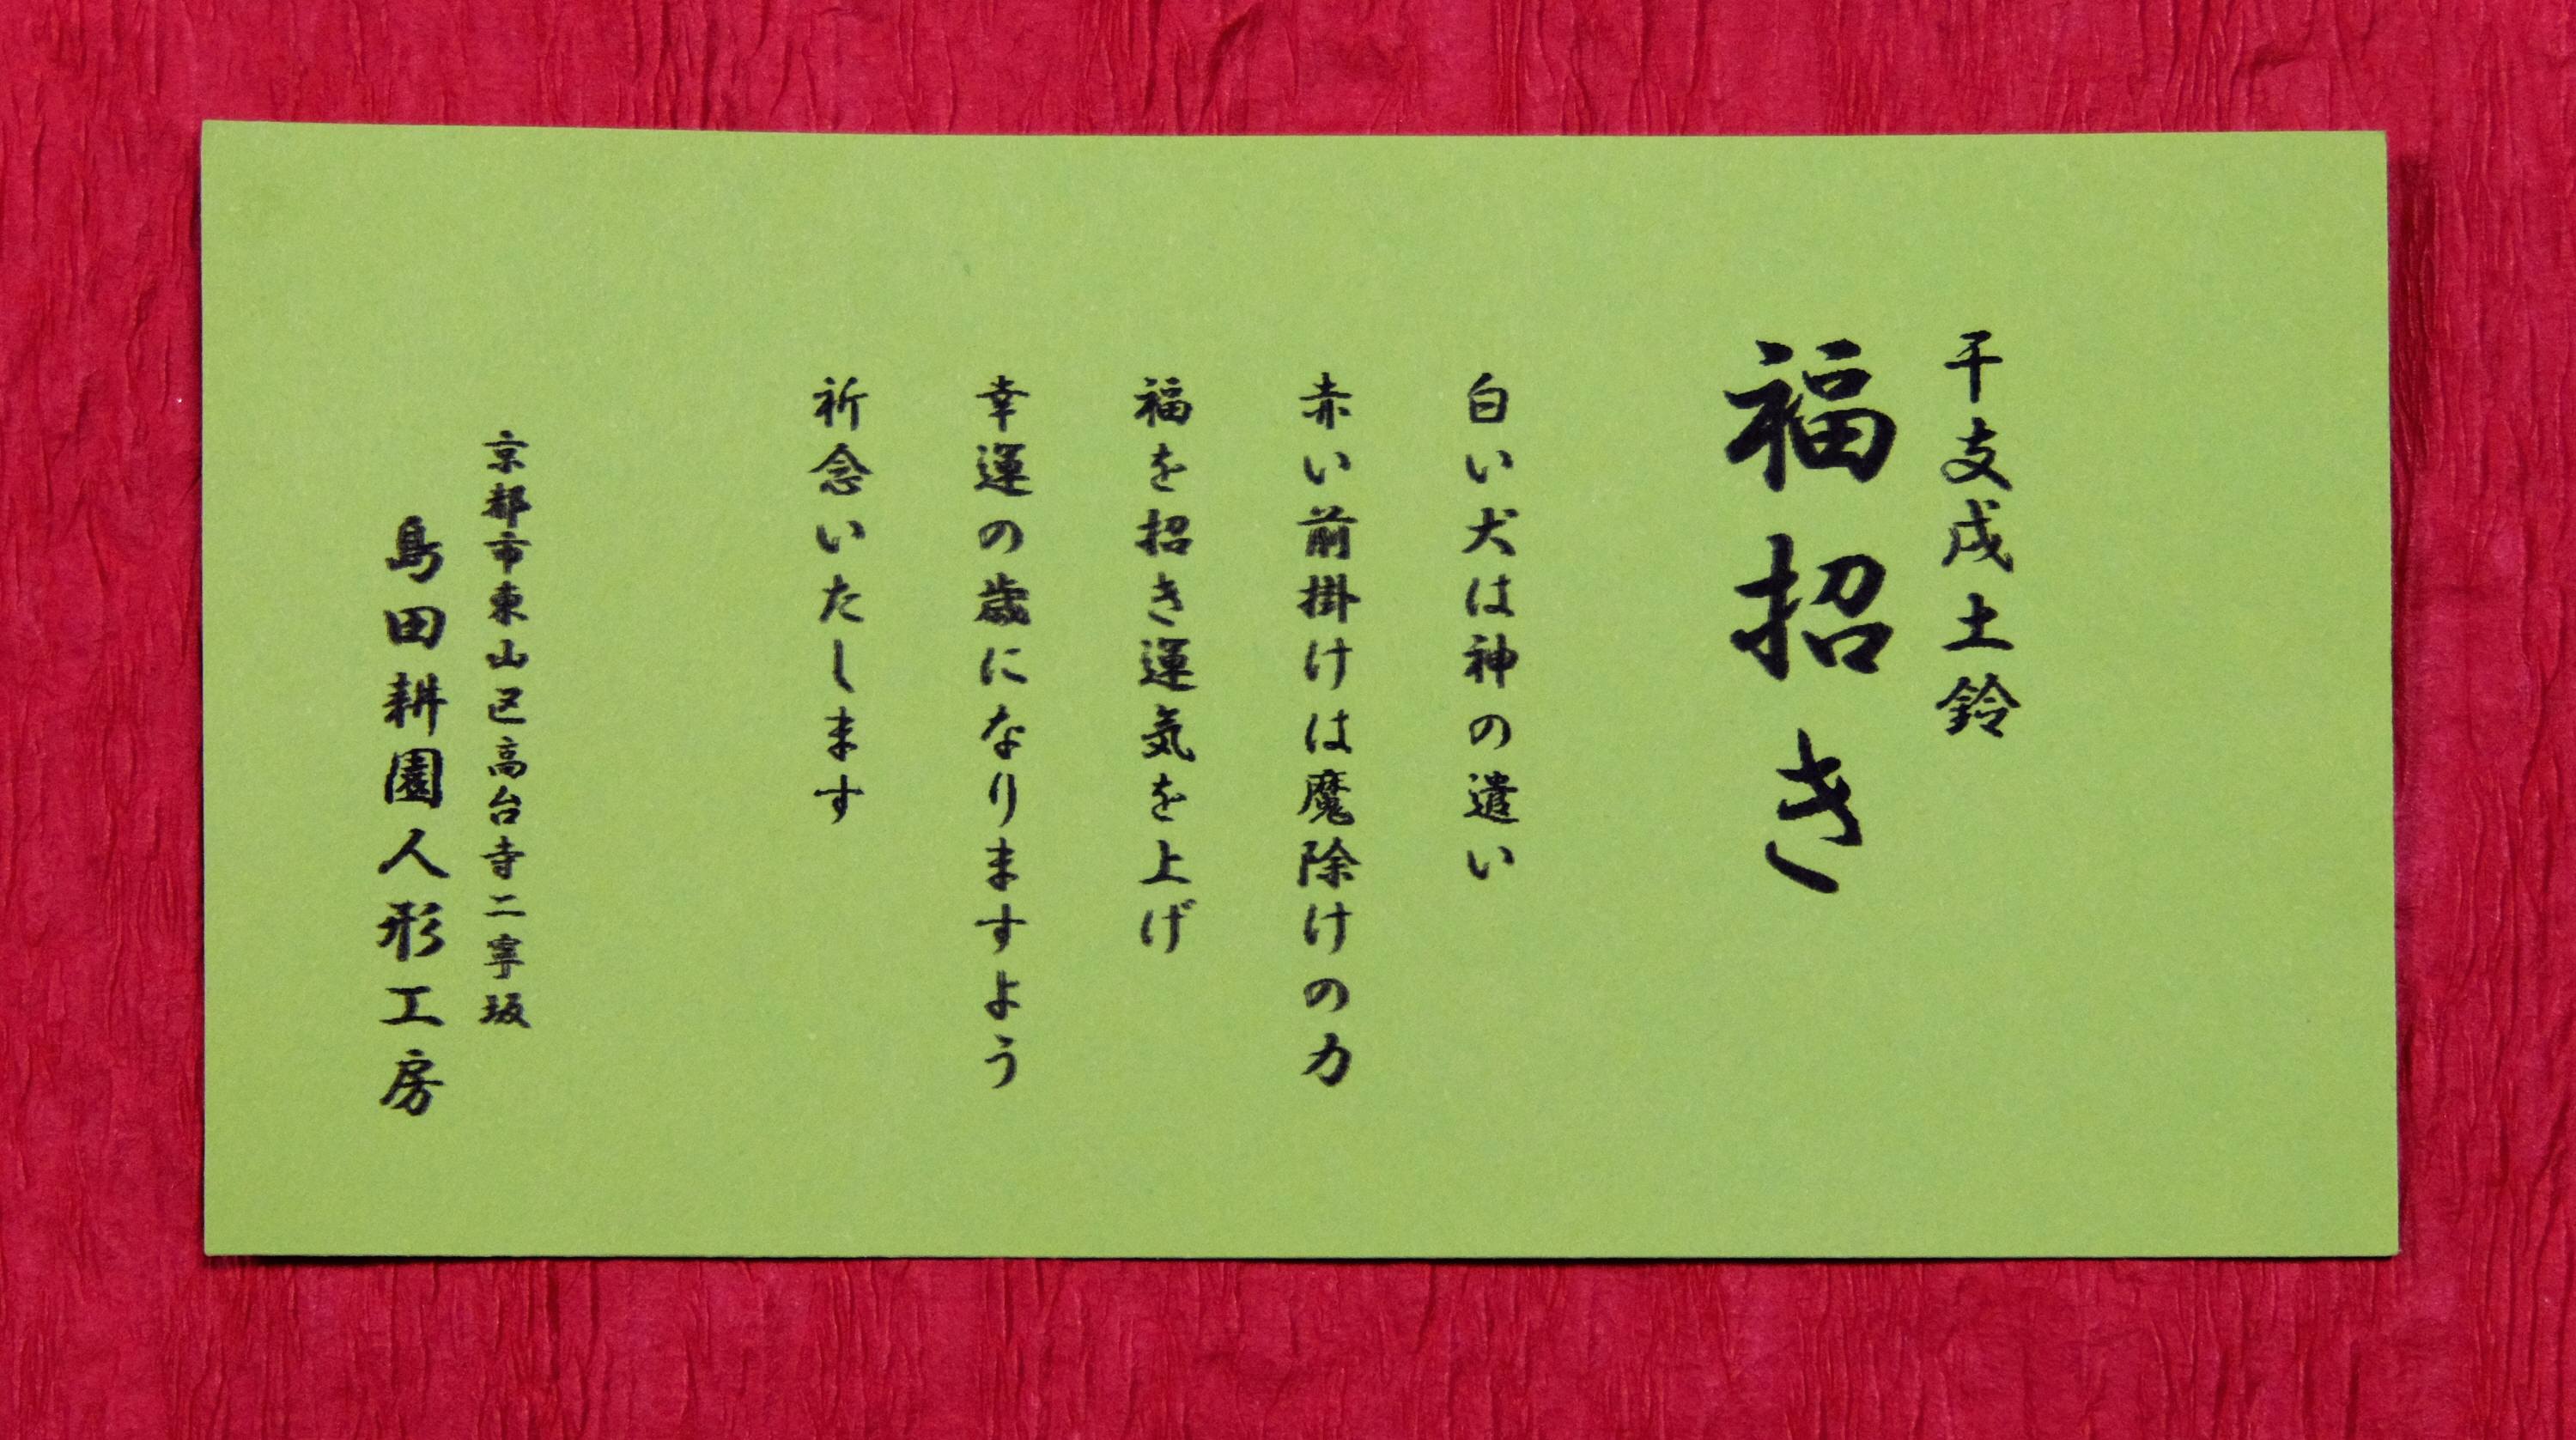 干支戌土鈴
福招き
白い犬は神の遣い
赤い前掛けは魔除けの力
福を招き運気を上げ
幸運の歳になりますよう
祈念いたします
京都市東山区高台寺二寧坂
島田耕園人形工房